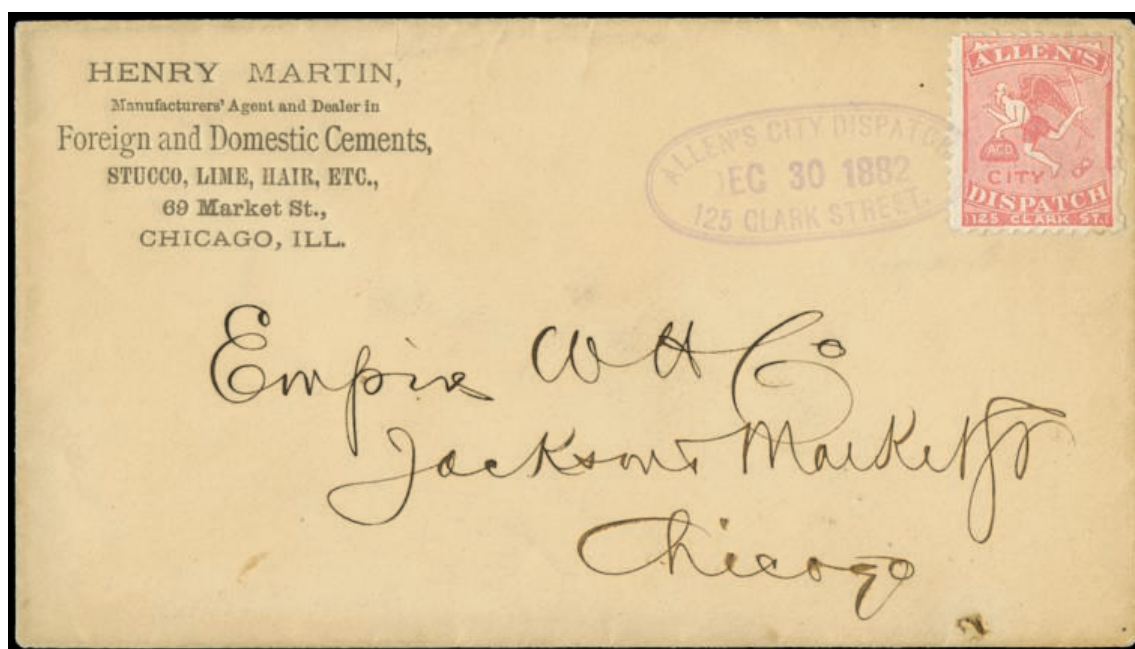 HENRY MARTIN,
Manufacturers' Agent and Dealer in
Foreign and Domestic Cements,
STUCCO, LIME, HAIR, ETC.,
69 Market St.,
CHICAGO, ILL.
ALLEN'S CITY DISPATCH
DEC 30 1882
125 CLARK STREET.
ALLEN'S
ACD
CITY
DISPATCH
125 CLARK ST.
Empire W H Co
Jackson & Market St
Chicago